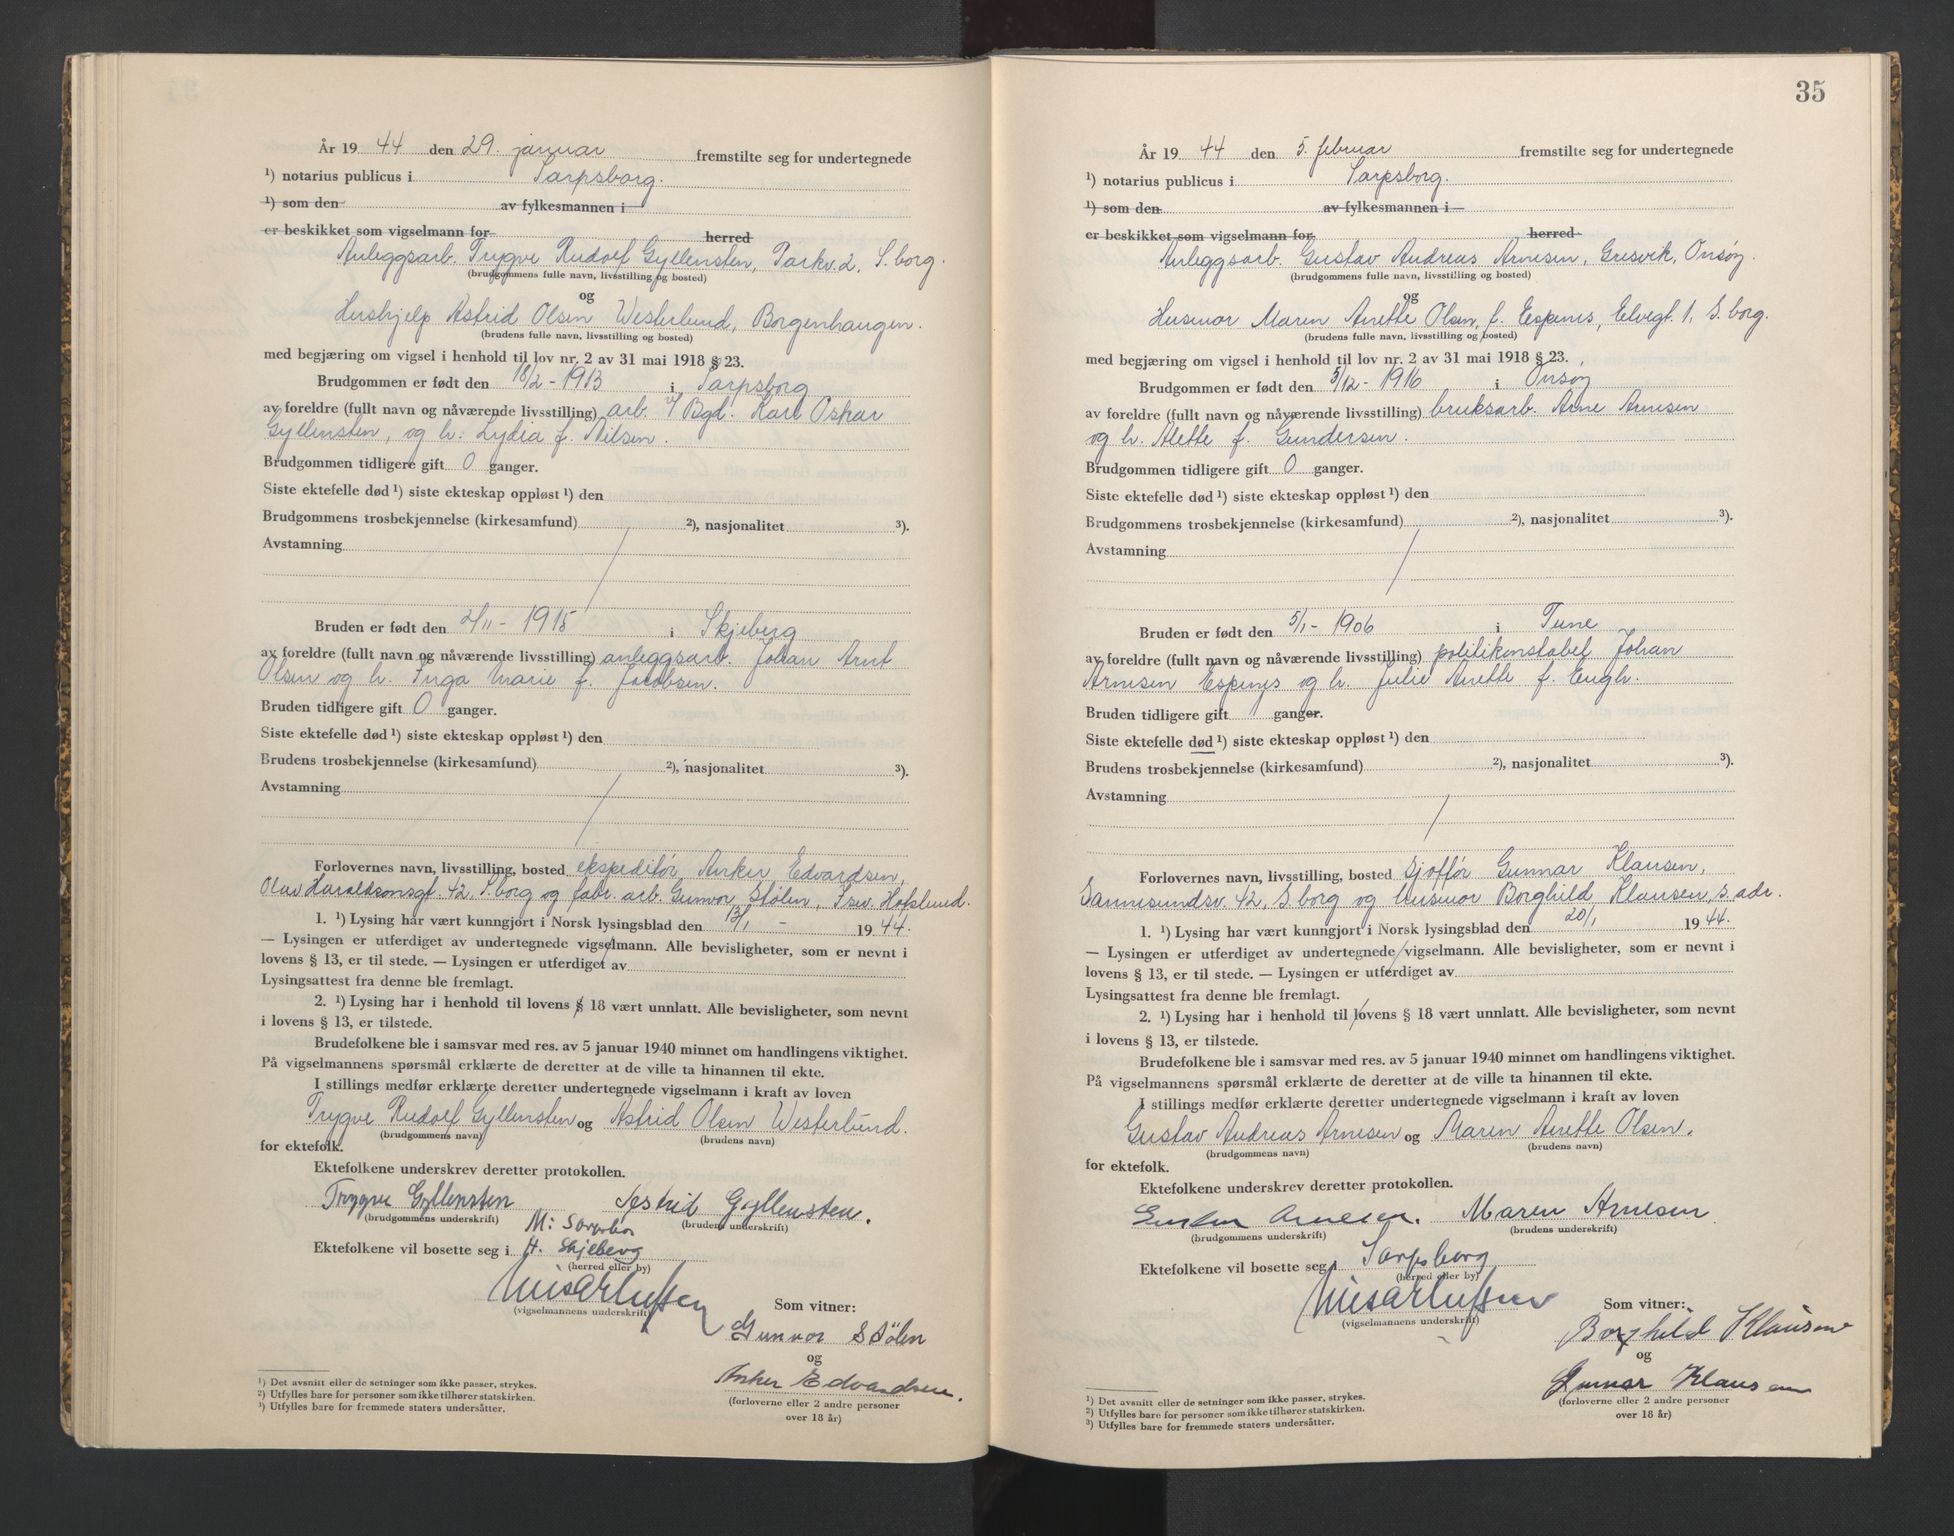 År 19 44 den 29. januar fremstilte seg for undertegnede
¹) notarius publicus i Sarpsborg.
¹) som den av fylkesmannen i
er beskikket som vigselmann for herred
Anleggsarb. Trygve Rudolf Gyllensten, Parkv. 2, S.borg.
(brudgommens fulle navn, livsstilling og bosted)
og
Hushjelp Astrid Olsen Westerlund, Borgenhaugen.
(brudens fulle navn, livsstilling og bosted)
med begjæring om vigsel i henhold til lov nr. 2 av 31 mai 1918 § 23.
Brudgommen er født den 18/2 - 1913 i Sarpsborg
av foreldre (fullt navn og nåværende livsstilling) arb. v/ Bgd. Karl Oskar
Gyllensten, og h. Lydia f. Nilsen.
Brudgommen tidligere gift 0 ganger.
Siste ektefelle død ¹) siste ekteskap oppløst ¹) den
Brudgommens trosbekjennelse (kirkesamfund) ²), nasjonalitet ³).
Avstamning
Bruden er født den 2/11 - 1915 i Skjeberg
av foreldre (fullt navn og nåværende livsstilling) anleggsarb. Johan Arnt
Olsen og h. Inga Marie f. Jacobsen.
Bruden tidligere gift 0 ganger.
Siste ektefelle død ¹) siste ekteskap oppløst ¹) den
Brudens trosbekjennelse (kirkesamfund) ²), nasjonalitet ³).
Avstamning
Forlovernes navn, livsstilling, bosted ekspeditør Anker Edvardsen,
Olav Haraldsonsgt. 42, S.borg og fabr. arb. Gunvor Stølen, Hafslund.
1. ¹) Lysing har vært kunngjort i Norsk lysingsblad den 13/1 - 19 44.
— Lysingen er utferdiget av undertegnede vigselmann. Alle bevisligheter, som er nevnt i
lovens § 13, er til stede. — Lysingen er utferdiget av
Lysingsattest fra denne ble fremlagt.
2. ¹) Lysing har i henhold til lovens § 18 vært unnlatt. Alle bevisligheter, som nevnt
i lovens § 13, er tilstede.
Brudefolkene ble i samsvar med res. av 5 januar 1940 minnet om handlingens viktighet.
På vigselmannens spørsmål erklærte de deretter at de ville ta hinannen til ekte.
I stillings medfør erklærte deretter undertegnede vigselmann i kraft av loven
Trygve Rudolf Gyllensten og Astrid Olsen Westerlund.
(brudgommens navn) (brudens navn)
for ektefolk.
Ektefolkene underskrev deretter protokollen.
Trygve Gyllensten Astrid Gyllensten.
(brudgommens underskrift) (brudens underskrift)
M: Sarpsborg
Ektefolkene vil bosette seg i H. Skjeberg
(herred eller by)
(vigselmannens underskrift)
Som vitner:
Gunvor Stølen
og
Anker Edvardsen.
(forloverne eller 2 andre personer
over 18 år)
¹) Det avsnitt eller de setninger som ikke passer, strykes.
²) Utfylles bare for personer som ikke tilhører statskirken.
³) Utfylles bare for fremmede staters undersåtter.
35
År 19 44 den 5. februar fremstilte seg for undertegnede
¹) notarius publicus i Sarpsborg.
¹) som den av fylkesmannen i
er beskikket som vigselmann for herred
Anleggsarb. Gustav Andreas Arnesen, Gresvik, Onsøy.
(brudgommens fulle navn, livsstilling og bosted)
og
Husmor Maren Anette Olsen, f. Espenes, Elvegt. 1, S.borg.
(brudens fulle navn, livsstilling og bosted)
med begjæring om vigsel i henhold til lov nr. 2 av 31 mai 1918 § 23.
Brudgommen er født den 5/12 - 1916 i Onsøy
av foreldre (fullt navn og nåværende livsstilling) bruksarb. Arne Arnesen
og h. Alette f. Gundersen.
Brudgommen tidligere gift 0 ganger.
Siste ektefelle død ¹) siste ekteskap oppløst ¹) den
Brudgommens trosbekjennelse (kirkesamfund) ²), nasjonalitet ³).
Avstamning
Bruden er født den 5/1 - 1906 i Tune
av foreldre (fullt navn og nåværende livsstilling) politikonstabel Johan
Arnesen Espenes og h. Julie Anette f. Engh.
Bruden tidligere gift 1 ganger.
Siste ektefelle død ¹) siste ekteskap oppløst ¹) den
Brudens trosbekjennelse (kirkesamfund) ²), nasjonalitet ³).
Avstamning
Forlovernes navn, livsstilling, bosted sjøffør Gunnar Klausen,
Sannesundsv. 42, S.borg og husmor Borghild Klausen, s. adr.
1. ¹) Lysing har vært kunngjort i Norsk lysingsblad den 20/1 19 44.
— Lysingen er utferdiget av undertegnede vigselmann. Alle bevisligheter, som er nevnt i
lovens § 13, er til stede. — Lysingen er utferdiget av
Lysingsattest fra denne ble fremlagt.
2. ¹) Lysing har i henhold til lovens § 18 vært unnlatt. Alle bevisligheter, som nevnt
i lovens § 13, er tilstede.
Brudefolkene ble i samsvar med res. av 5 januar 1940 minnet om handlingens viktighet.
På vigselmannens spørsmål erklærte de deretter at de ville ta hinannen til ekte.
I stillings medfør erklærte deretter undertegnede vigselmann i kraft av loven
Gustav Andreas Arnesen og Maren Anette Olsen.
(brudgommens navn) (brudens navn)
for ektefolk.
Ektefolkene underskrev deretter protokollen.
Gustav Arnesen. Maren Arnesen
(brudgommens underskrift) (brudens underskrift)
Ektefolkene vil bosette seg i Sarpsborg
(herred eller by)
(vigselmannens underskrift)
Som vitner:
Borghild Klausen
og
Gunnar Klausen
(forloverne eller 2 andre personer
over 18 år)
¹) Det avsnitt eller de setninger som ikke passer, strykes.
²) Utfylles bare for personer som ikke tilhører statskirken.
³) Utfylles bare for fremmede staters undersåtter.